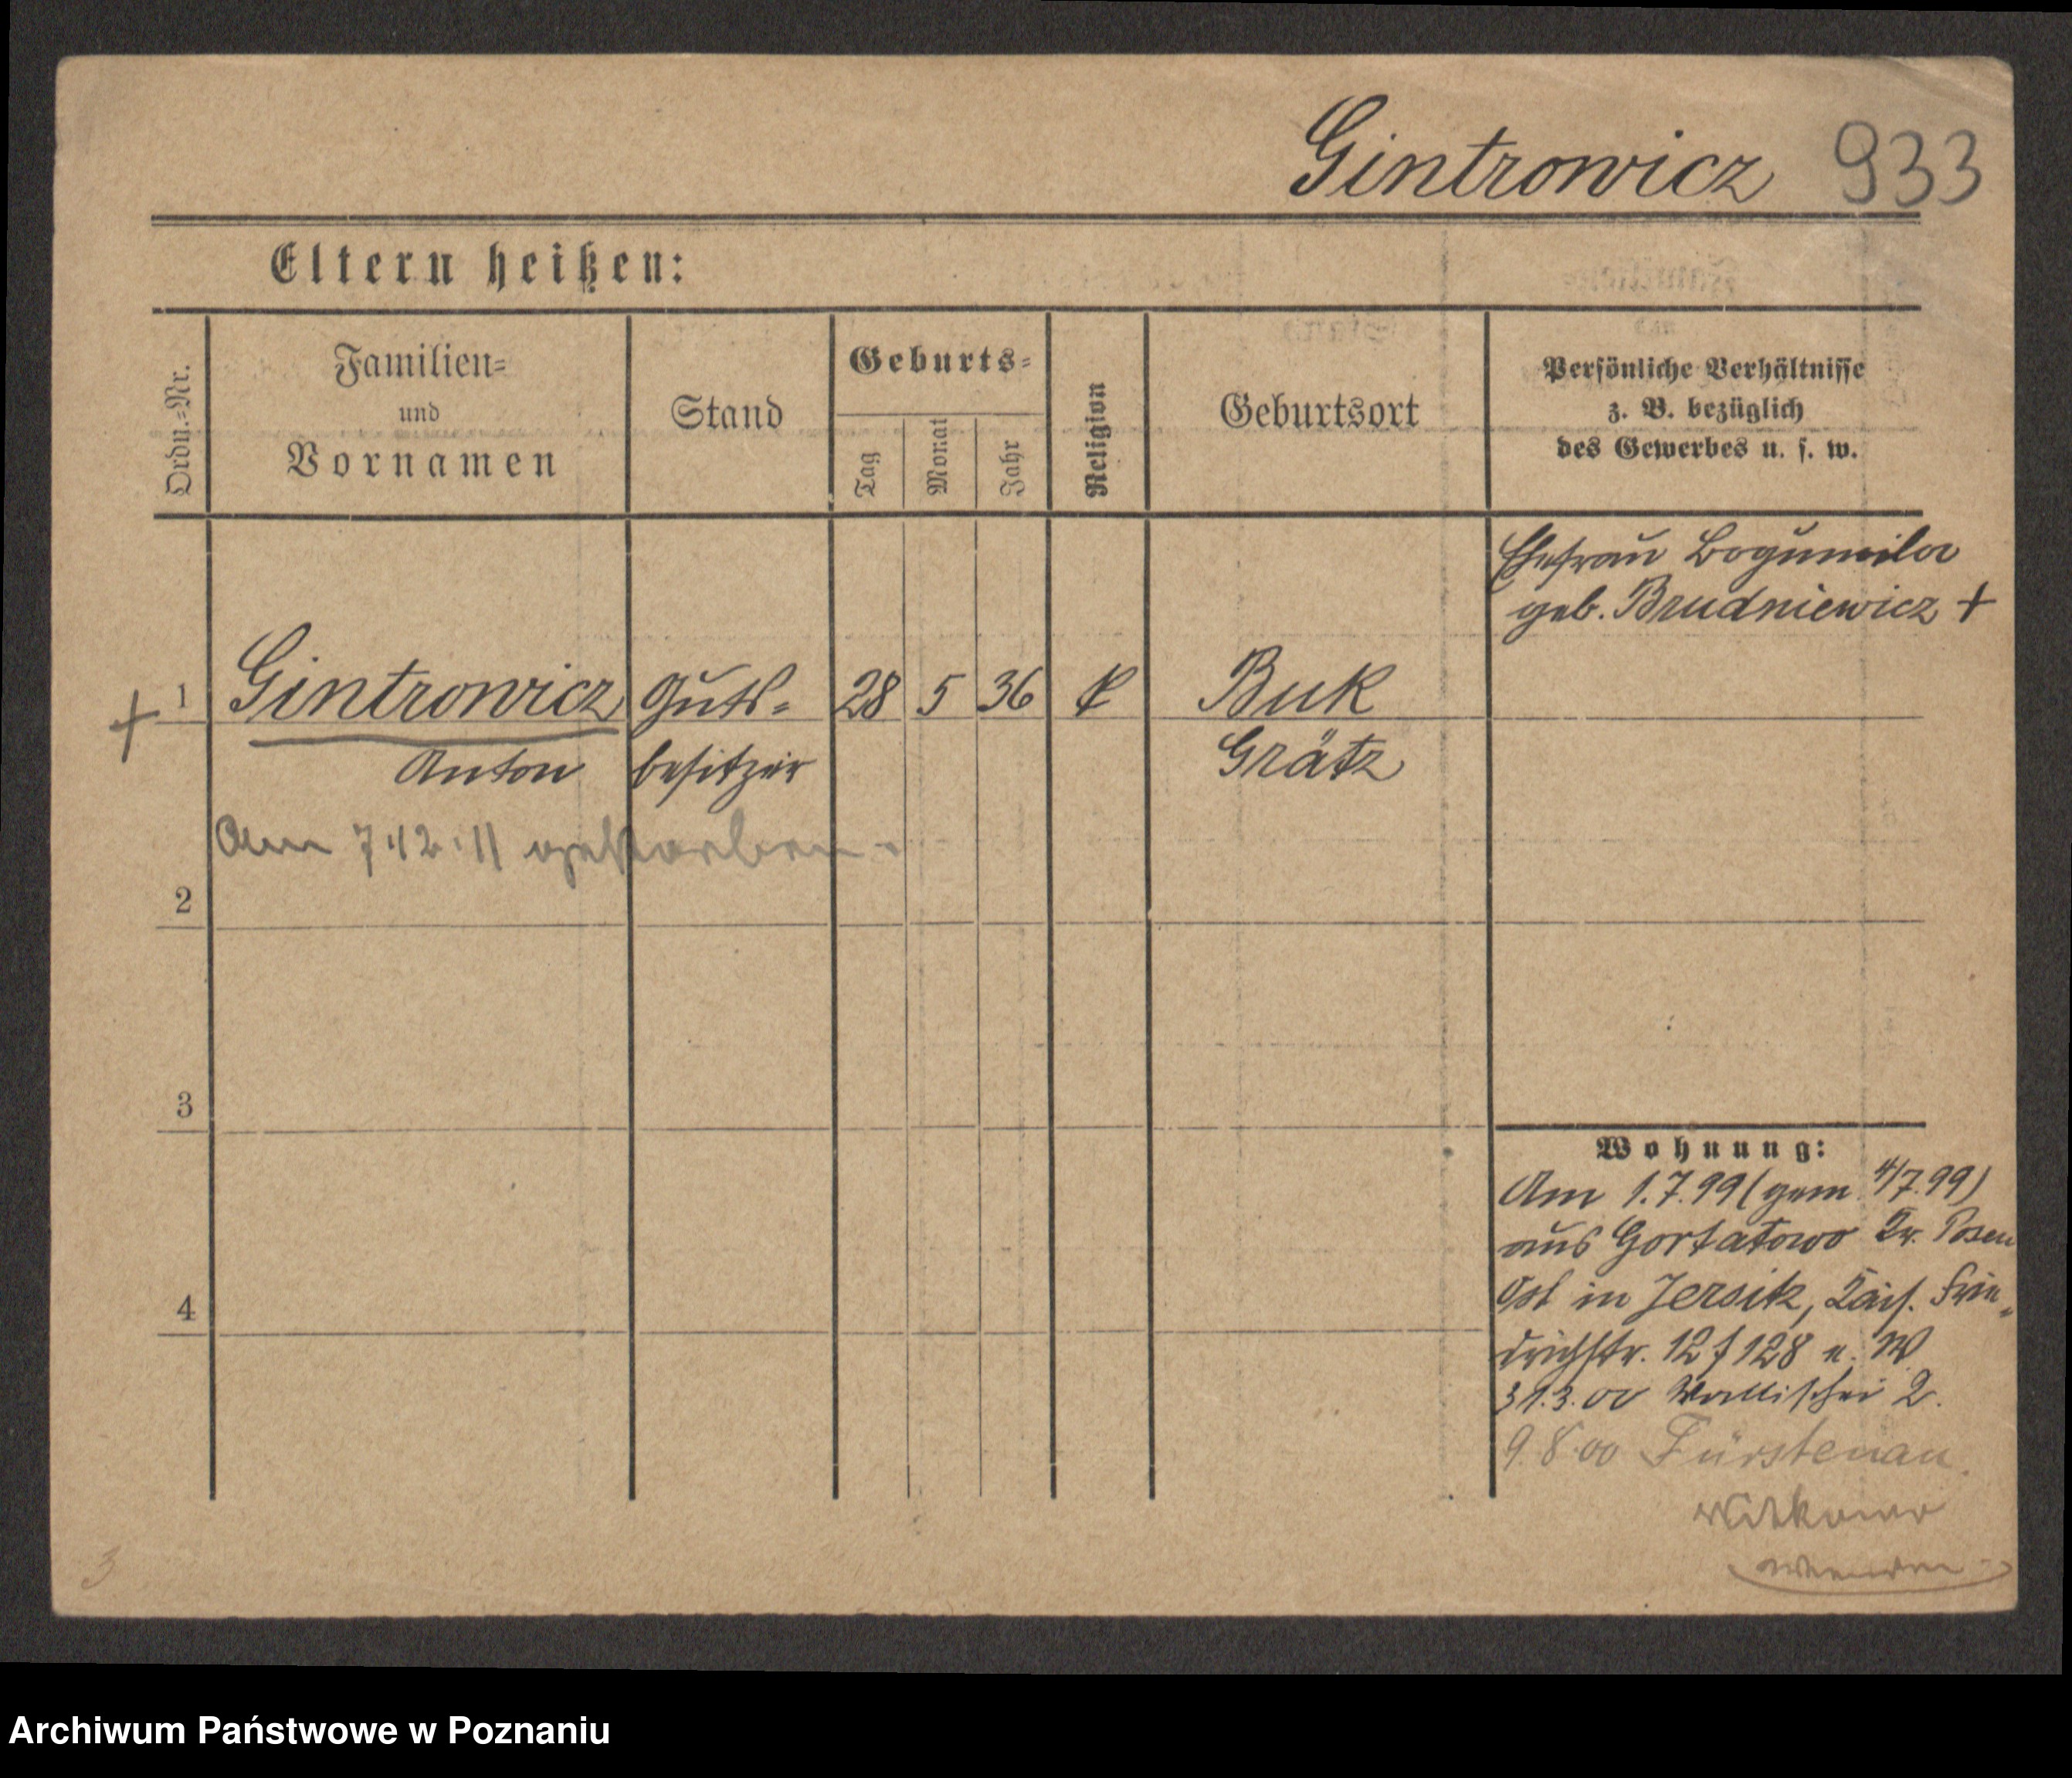 Gintrowicz 933
Eltern heißen:
Ordn.=Nr.
Familien=
und
Vornamen
Stand
Geburts=
Tag
Monat
Jahr
Religion
Geburtsort
Persönliche Verhältnisse
z. B. bezüglich
des Gewerbes u. s. w.
Ehefrau Bogumila
geb. Brudniewicz +
+ 1 Gintrowicz Guts= 28 5 36 k Buk
Anton besitzer Grätz
Am 7.12.11 gestorben.
2
3
4
Wohnung:
Am 1.7.99 (gem 4/7.99)
aus Gortatowo Kr. Posen
Ost in Jersitz, Kais. Frie=
drichstr. 127/128 n. W
31.3.00 Wallischei 2.
9.8.00 Fürstenau
Witkowo
wenden
3
Archiwum Państwowe w Poznaniu